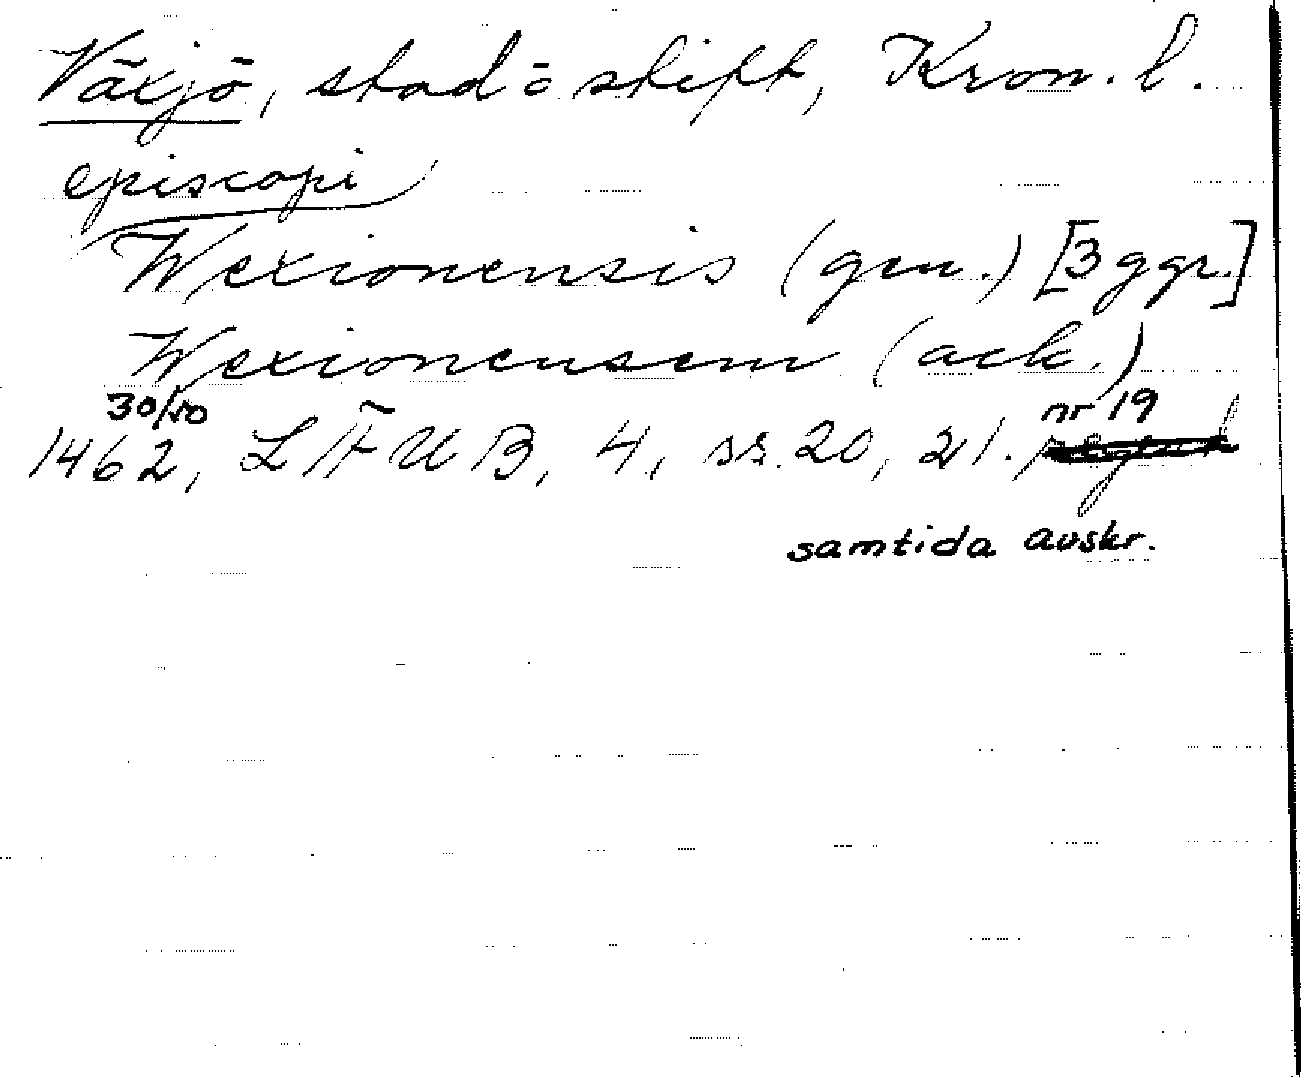 Växjö, stad o skift, Kron. l.
episcopi
Wexionensis (gen.) [3 ggr.]
Wexionensem (ack.)
30/10 nr 19
1462, LFUB, 4, ss. 20, 21.
samtida avskr.